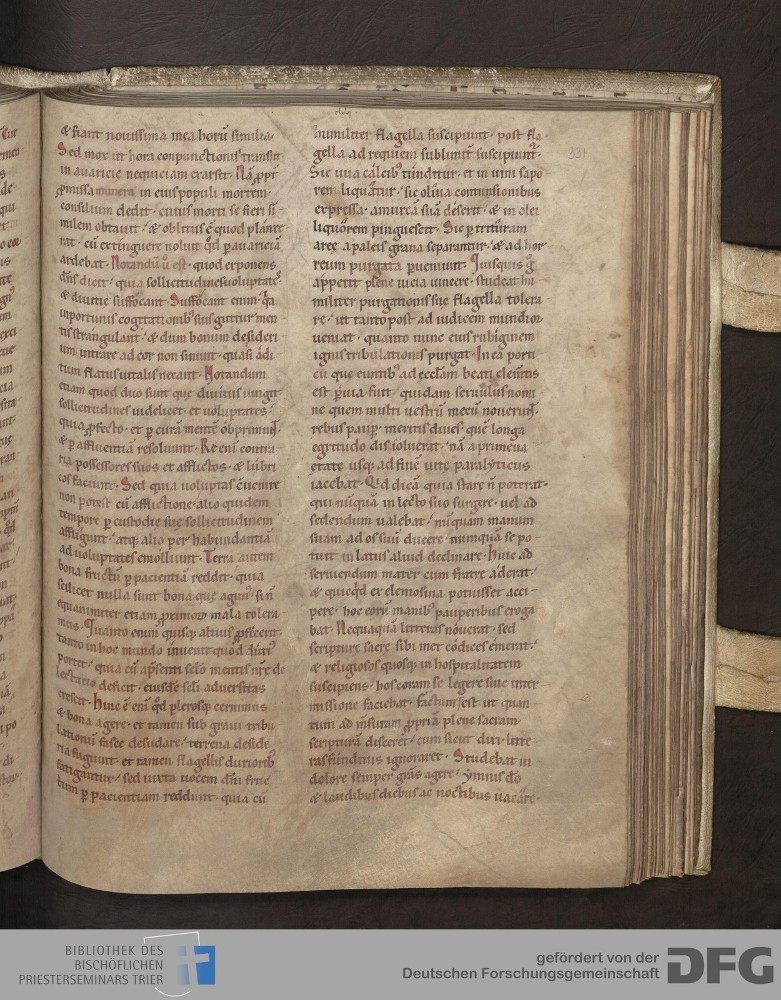 & fiant nouissima mea horū similia·
Sed mox ut hora conpunctionis transiit
in auaricie nequiciam exarsit· Nā ꝓpt̄
ꝓmissa munera in eius populi mortem·
consilium dedit· cuius morti se fieri si-
milem obtauit· & oblitus ē quod planxe-
rat· cū extinguere noluit qd̄ ꝑ auariciā
ardebat· Notandū ū est· quod exponens
dn̄s dicit· quia sollicitudines uoluptates
& diuitie suffocant· Suffocant enim· q̄a
inportunis cogitationib; suis guttur men-
tis strangulant· & dum bonum desideri-
um intrare ad cor non sinunt· quasi adi-
tum flatus uitalis necant· Notandum
etiam quod duo sunt que diuitiis iungit·
sollicitudines uidelicet· et uoluptates·
quia ꝓfecto· et ꝑ curā mentē obprimunt·
& ꝑ affluentiā resoluunt· Re enī contra-
ria possessores suos et afflictos· & lubri-
cos faciunt· Sed quia uoluptas cūuenire
non potest cū afflictione· alio quidem
tempore ꝑ custodie sue sollicitudinem
affligunt· atq; alio per habundantiā
ad uoluptates emolliunt· Terra autem
bona fructū ꝑ pacientiā reddit· quia
scilicet nulla sunt bona que agim; si n̄
equanimiter etiam ꝓximorꝝ mala tolera-
mus· Quanto enim quisq; altius ꝓfecerit·
tanto in hoc mundo inuenit quod duri;
portet· quia cū a p̄senti sc̄lo mentis nr̄e de-
lectatio deficit· eiusdē sc̄li aduersitas
crescit· Hinc ē enī qd̄ plerosq; cernimus
& bona agere· et tamen sub graui tribu-
lationū fasce desudare· terrena deside-
ria fugiunt· et tamen flagellis duriorib;
fatigantur· sed iuxta uocem dn̄i fruc-
tum ꝑ pacientiam reddunt· quia cū
humiliter flagella suscipiunt· post fla-
gella ad requiem sublimit̄ suscipiunt̄·
Sic uua calcib; tunditur· et in uini sapo-
rem liquatur· sic oliua contusionibus
expressa· amurcā suā deserit· & in olei
liquorem pinguescit· Sic ꝑ trituram
aree a paleis grana separantur· & ad hor-
reum purgata ꝑueniunt· Quisquis g̊
appetit plene uicia uincere· studeat hu-
militer purgationis sue flagella tolera-
re· ut tanto post ad iudicem mundior
ueniat· quanto nunc eius rubiginem
ignis tribulationis purgat· In ea porti-
cu que euntib; ad eccl̄am beati clemētis
est ꝑuia· fuit quidam seruulus nomi-
ne quem multi uestrū mecū nouerunt·
rebus paup̄· meritis diues· quē longa
egritudo dissoluerat· nā a primeua
etate usq; ad finē uite paraliticus
iacebat· Qd̄ dicā quia stare n̄ poterat·
qui nūquā in lecto suo surgere· uel ad
sedendum ualebat· nūquam manum
suam ad os suū ducere· nunquā se po-
tuit in latus aliud declinare· Huic ad
seruiendum mater cum fratre aderat·
& quicqd̄ ex elemosina potuisset acci-
pere· hoc eorū manib; pauperibus eroga-
bat· Nequaquā litteras nouerat· sed
scripture sacre sibi met codices emerat·
& religiosos quosq; in hospitalitatem
suscipiens· hos coram se legere sine inter-
missione faciebat· Factum est ut quan-
tum ad m̄suram ꝓpriā plene sacram
scripturā disceret· cum sicut dixi· litte-
ras funditus ignoraret· Studebat in
dolore semper grās agere· ymnis dō
& laudibus diebus ac noctibus uacare·
331
BIBLIOTHEK DES
BISCHÖFLICHEN
PRIESTERSEMINARS TRIER
gefördert von der
Deutschen Forschungsgemeinschaft
DFG